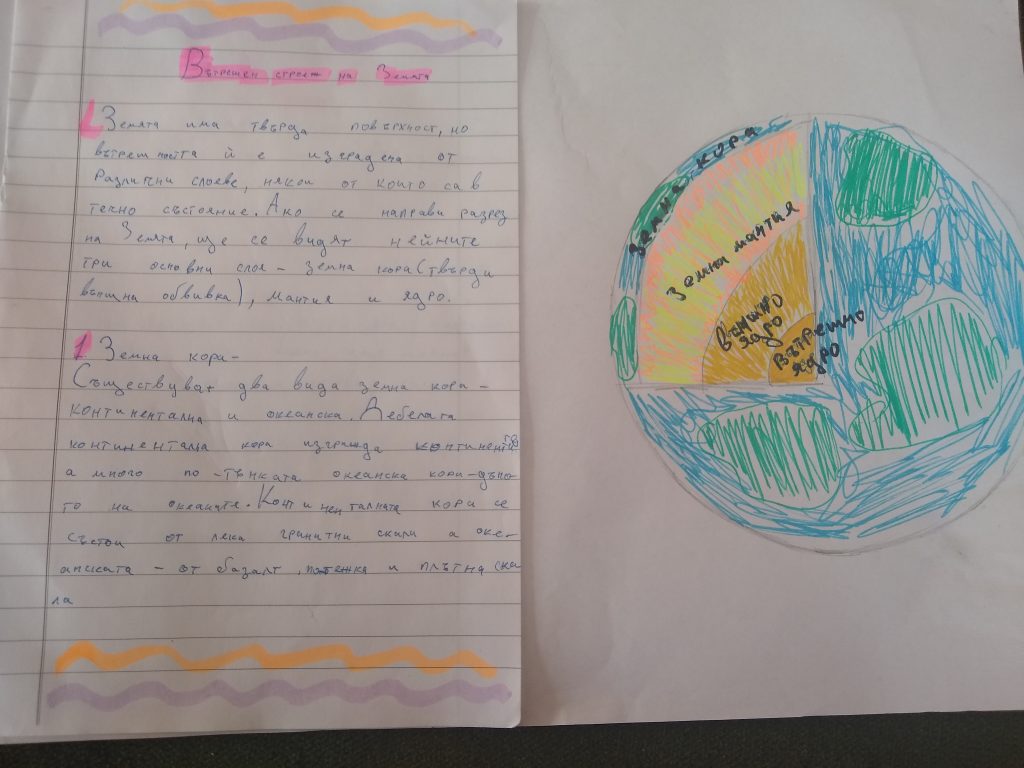 Вътрешен строеж на Земята
Земята има твърда повърхност, но
вътрешността ѝ е изградена от
различни слоеве, някои от които са в
течно състояние. Ако се направи разрез
на Земята, ще се видят нейните
три основни слоя - земна кора (твърди
външна обвивка), мантия и ядро.
1 Земна кора -
Съществуват два вида земна кора -
континентална и океанска. Дебелата
континентална кора изгражда континентите
а много по-тънката океанска кора - дъно-
то на океаните. Континенталната кора се
състои от лека гранитни скали а оке-
анската - от базалт, по тежка и плътна ска
ла
земна кора
Земна мантия
Външно
ядро
Вътрешно
ядро